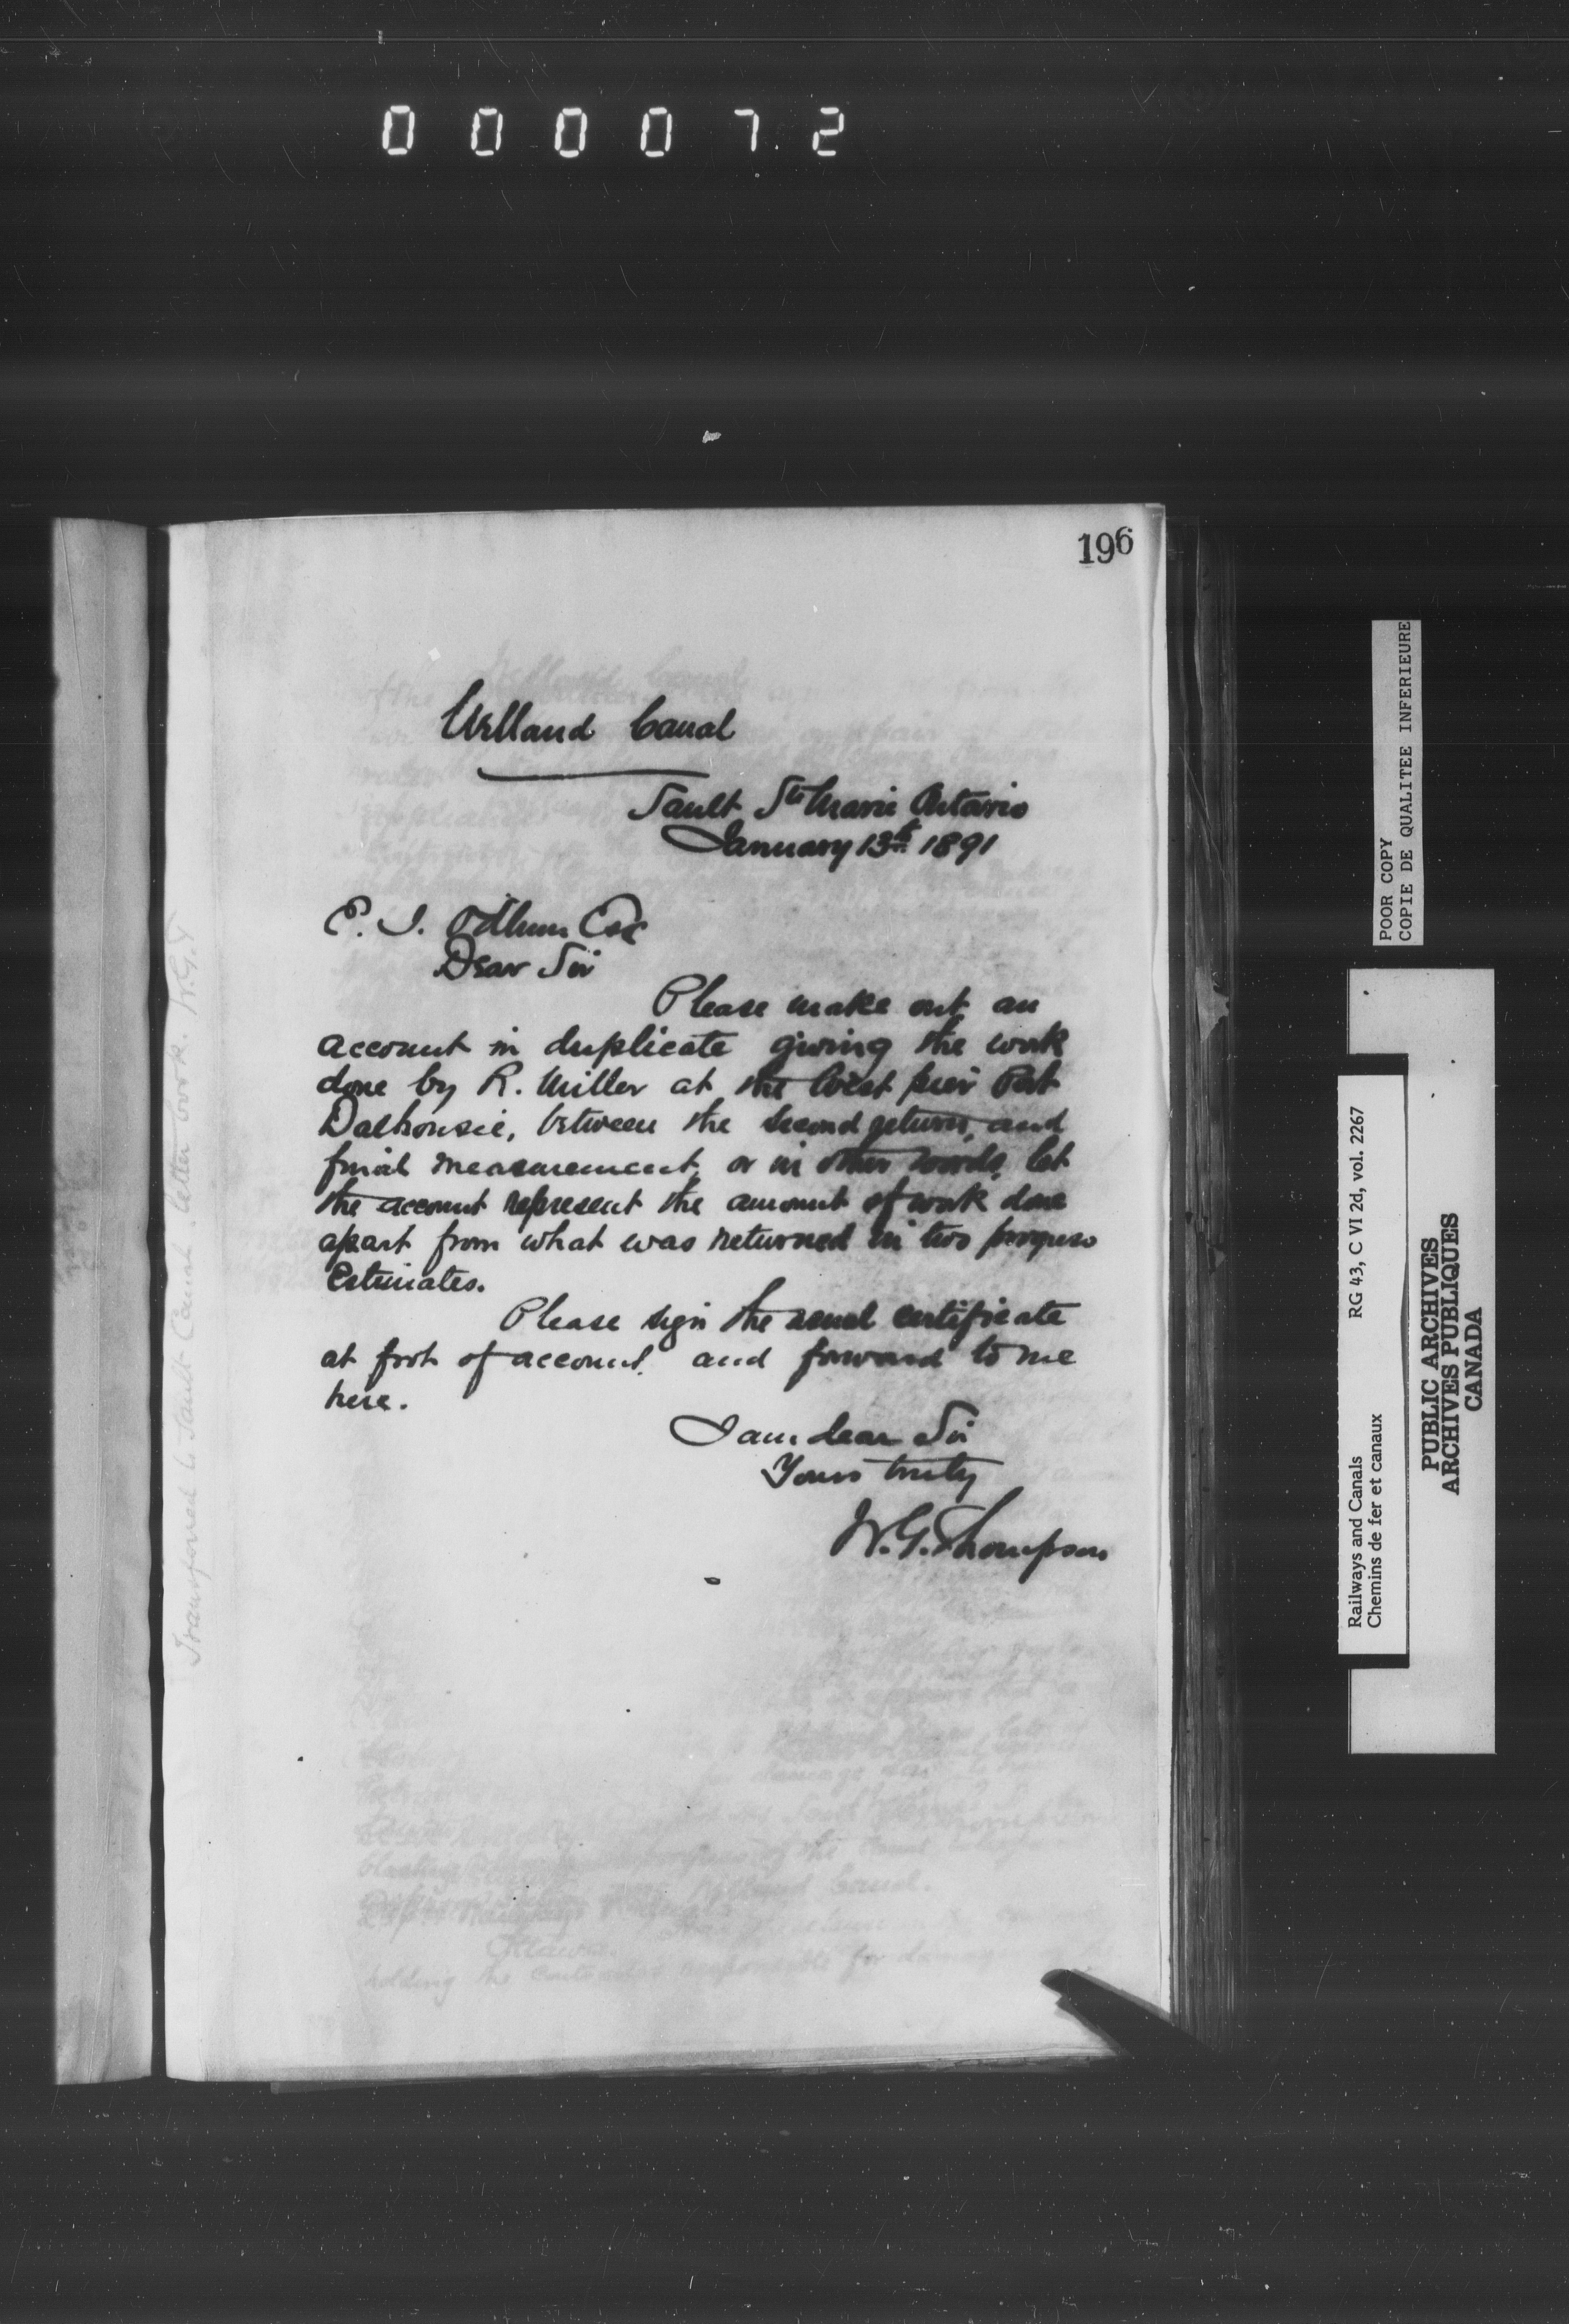 0 0 0 0 7 2
196
Welland Canal
Sault Ste Marie Ontario
January 13th 1891
E. J. Odlum Esq
Dear Sir
Please make out an
account in duplicate giving the work
done by R. Miller at the West pier Port
Dalhousie, between the second return, and
final measurement, or in other words, let
the account represent the amount of work done
apart from what was returned in two progress
Estimates.
Please sign the usual certificate
at foot of account and forward to me
here.
I am dear Sir
Yours truly
W. G. Thompson
Transferred to Sault Canal letter book. W.G.T
POOR COPY
COPIE DE QUALITEE INFERIEURE
Railways and Canals
Chemins de fer et canaux
RG 43, C VI 2d, vol. 2267
PUBLIC ARCHIVES
ARCHIVES PUBLIQUES
CANADA